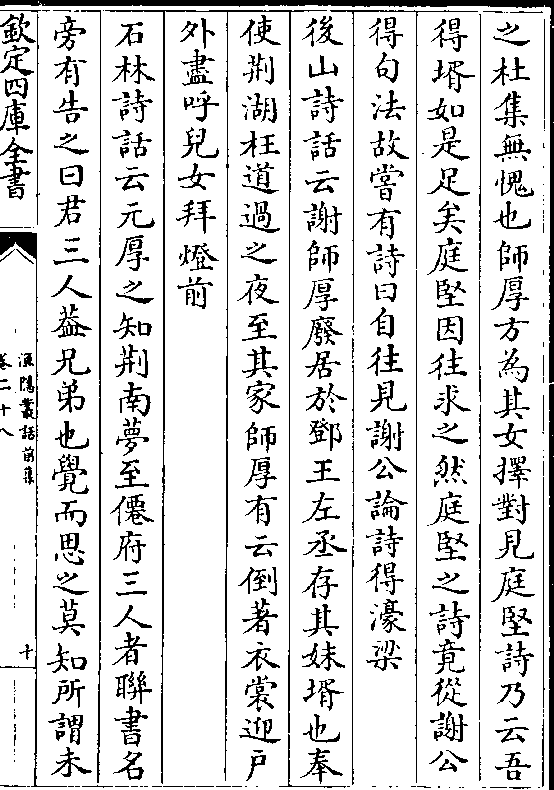 之杜集無愧也師厚方為其女擇對見庭堅詩乃云吾
得壻如是足矣庭堅因往求之然庭堅之詩竟從謝公
得句法故嘗有詩曰自往見謝公論詩得濠梁
後山詩話云謝師厚廢居於鄧王左丞存其妹壻也奉
使荆湖枉道過之夜至其家師厚有云倒著衣裳迎户
外盡呼兒女拜燈前
石林詩話云元厚之知荆南夢至僊府三人者聯書名
旁有告之曰君三人葢兄弟也覺而思之莫知所謂未
欽定四庫全書
漁隱叢話前集
卷二十八
十